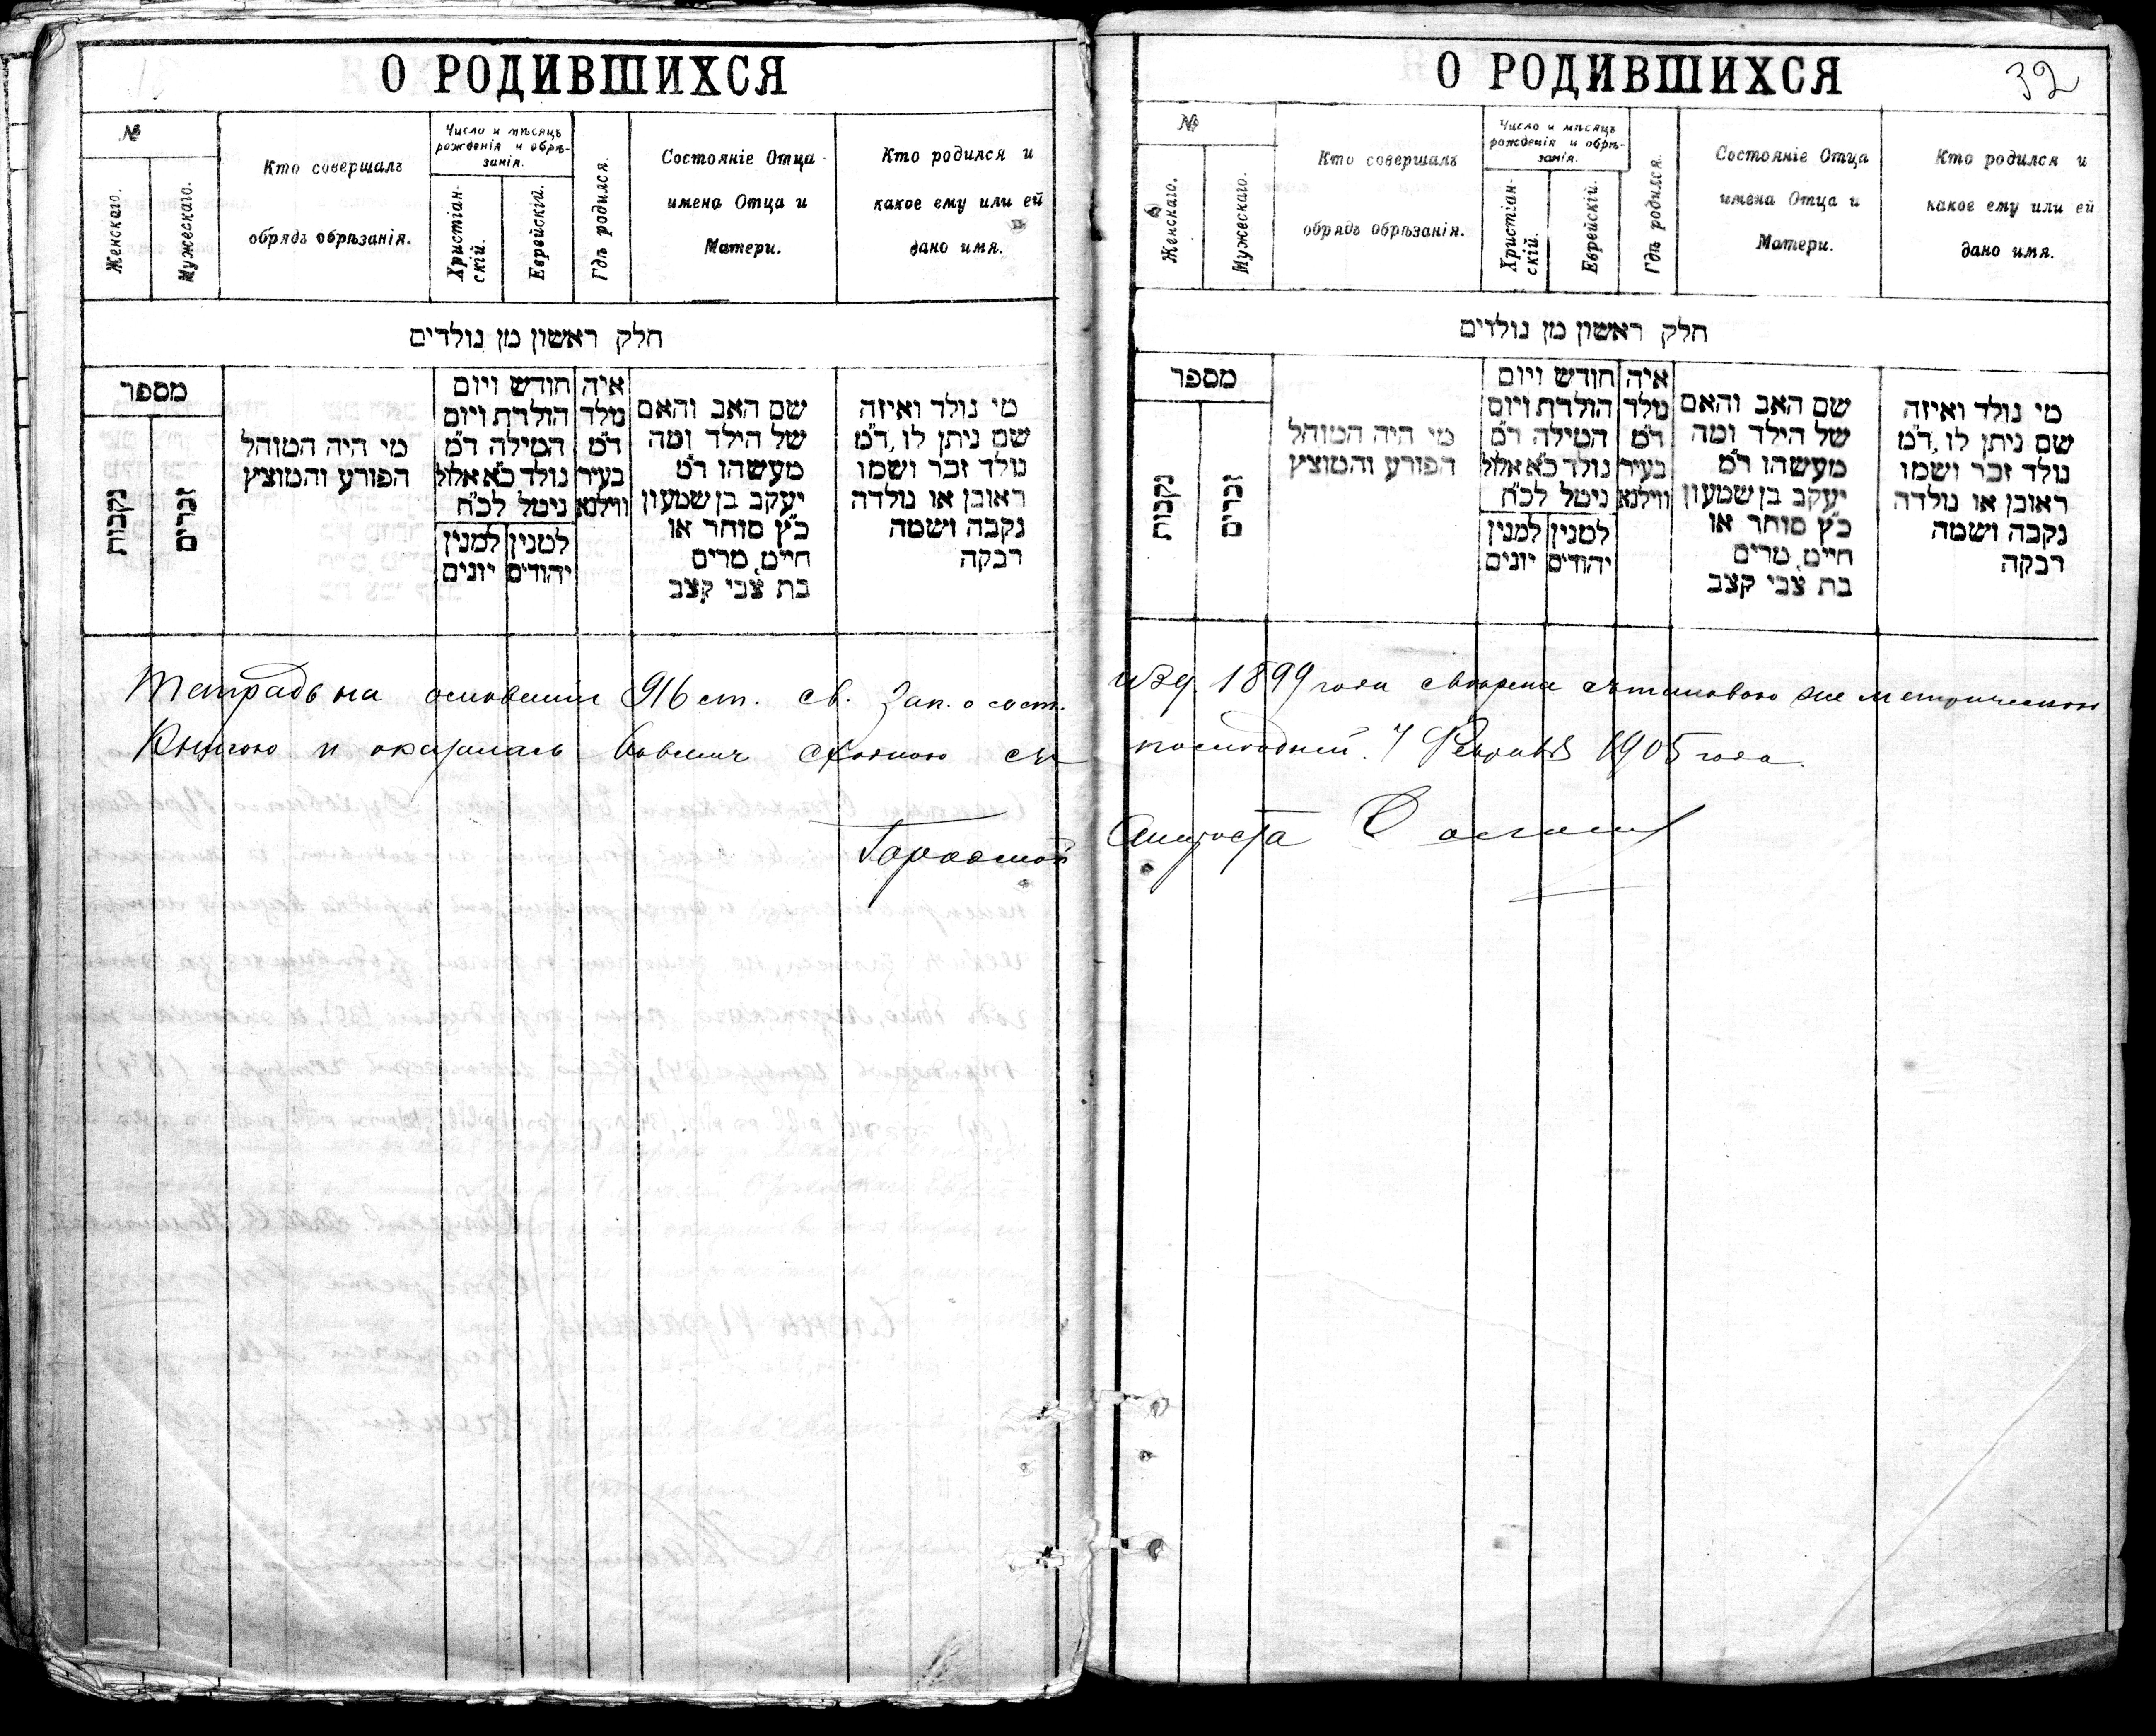 О РОДИВШИХСЯ
№
Женскаго.
Мужескаго.
Кто совершалъ
обрядъ обрѣзанія.
Число и мѣсяцъ
рожденія и обрѣ-
занія.
Христіан-
скій.
Еврейскій.
Гдѣ родился.
Состояніе Отца
имена Отца и
Матери.
Кто родился и
какое ему или ей
дано имя.
חלק ראשון מן נולדים
מספר
נקבות
זכרים
מי היה המוהל
הפורע והמוצץ
חודש ויום
הולדת ויום
המילה ד״מ
נולד כ״א אלול
ניטל לכ״ח
למנין
יונים
למנין
יהודים
איה
נולד
ד״מ
בעיר
ווילנא
שם האב והאם
של הילד ומה
מעשהו ד״מ
יעקב בן שמעון
כ״ץ סוחר או
חייט, מרים
בת צבי קצב
מי נולד ואיזה
שם ניתן לו, ד״מ
נולד זכר ושמו
ראובן או נולדה
נקבה ושמה
רבקה
Тетрадь на основаніи 916 ст. св. Зак. о сост.
Книгою и оказалась вовсемъ сходною съ
Городской
О РОДИВШИХСЯ
32
№
Женскаго.
Мужескаго.
Кто совершалъ
обрядъ обрѣзанія.
Число и мѣсяцъ
рожденія и обрѣ-
занія.
Христіан-
скій.
Еврейскій.
Гдѣ родился.
Состояніе Отца
имена Отца и
Матери.
Кто родился и
какое ему или ей
дано имя.
חלק ראשון מן נולדים
מספר
נקבות
זכרים
מי היה המוהל
הפורע והמוצץ
חודש ויום
הולדת ויום
המילה ד״מ
נולד כ״א אלול
ניטל לכ״ח
למנין
יונים
למנין
יהודים
איה
נולד
ד״מ
בעיר
ווילנא
שם האב והאם
של הילד ומה
מעשהו ד״מ
יעקב בן שמעון
כ״ץ סוחר או
חייט, מרים
בת צבי קצב
מי נולד ואיזה
שם ניתן לו, ד״מ
נולד זכר ושמו
ראובן או נולדה
נקבה ושמה
רבקה
изд. 1899 года свѣрена съ таковою же метрическою
последней. 7 Февраля 1905 года.
Староста